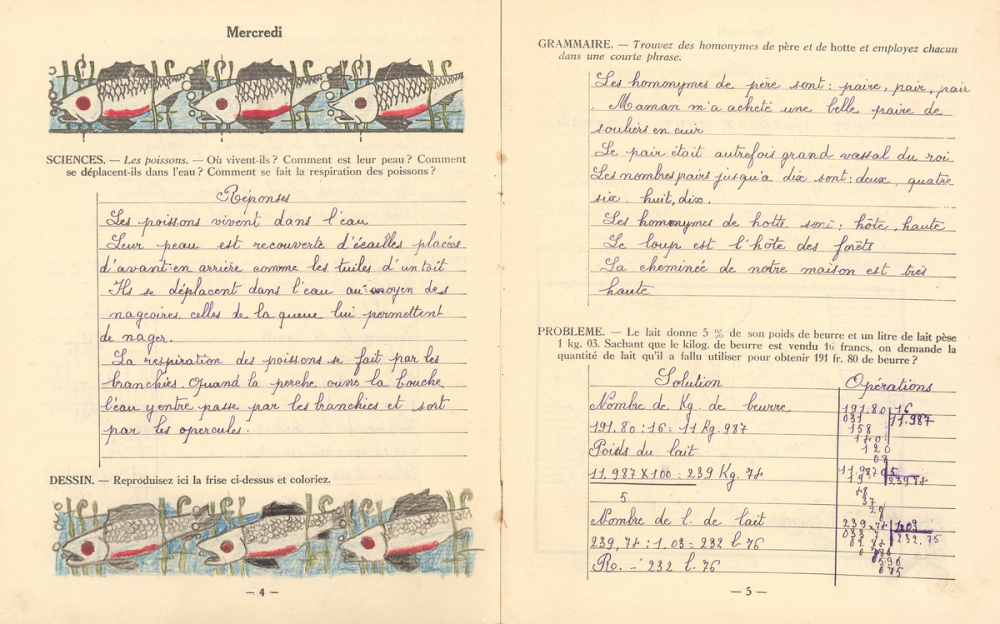 Mercredi
SCIENCES. — Les poissons. — Où vivent-ils ? Comment est leur peau ? Comment
se déplacent-ils dans l'eau ? Comment se fait la respiration des poissons ?
Réponses
Les poissons vivent dans l'eau
Leur peau est recouverte d'écailles placées
d'avant en arrière comme les tuiles d'un toit
Ils se déplacent dans l'eau au moyen des
nageoires, celles de la queue lui permettent
de nager.
La respiration des poissons se fait par les
branchies. Quand la perche ouvre la bouche
l'eau y entre passe par les branchies et sort
par les opercules.
DESSIN. — Reproduisez ici la frise ci-dessus et coloriez.
— 4 —
GRAMMAIRE. — Trouvez des homonymes de père et de hotte et employez chacun
dans une courte phrase.
Les homonymes de père sont : paire, pair, pair
. Maman m'a acheté une belle paire de
souliers en cuir
Le pair était autrefois grand vassal du roi
Les nombres pairs jusqu'a dix sont : deux, quatre
six, huit, dix.
Les homonymes de hotte sont : hôte, haute
Le loup est l'hôte des forêts
La cheminée de notre maison est très
haute
PROBLEME. — Le lait donne 5 % de son poids de beurre et un litre de lait pèse
1 kg. 03. Sachant que le kilog. de beurre est vendu 16 francs, on demande la
quantité de lait qu'il a fallu utiliser pour obtenir 191 fr. 80 de beurre ?
Solution Opérations
Nombre de Kg. de beurre
191.80 16
031 11.987
191.80 : 16 = 11 Kg. 987
158
140
120
08
Poids du lait
11.987 X 100 = 239 Kg. 74
5
11.987 5
19 239,74
48
37
29
Nombre de l. de lait
239.74 1,03
033 7 232,75
239,74 : 1,03 = 232 l. 76
02 84
0 780
0 590
075
Ro. — 232 l. 76
— 5 —